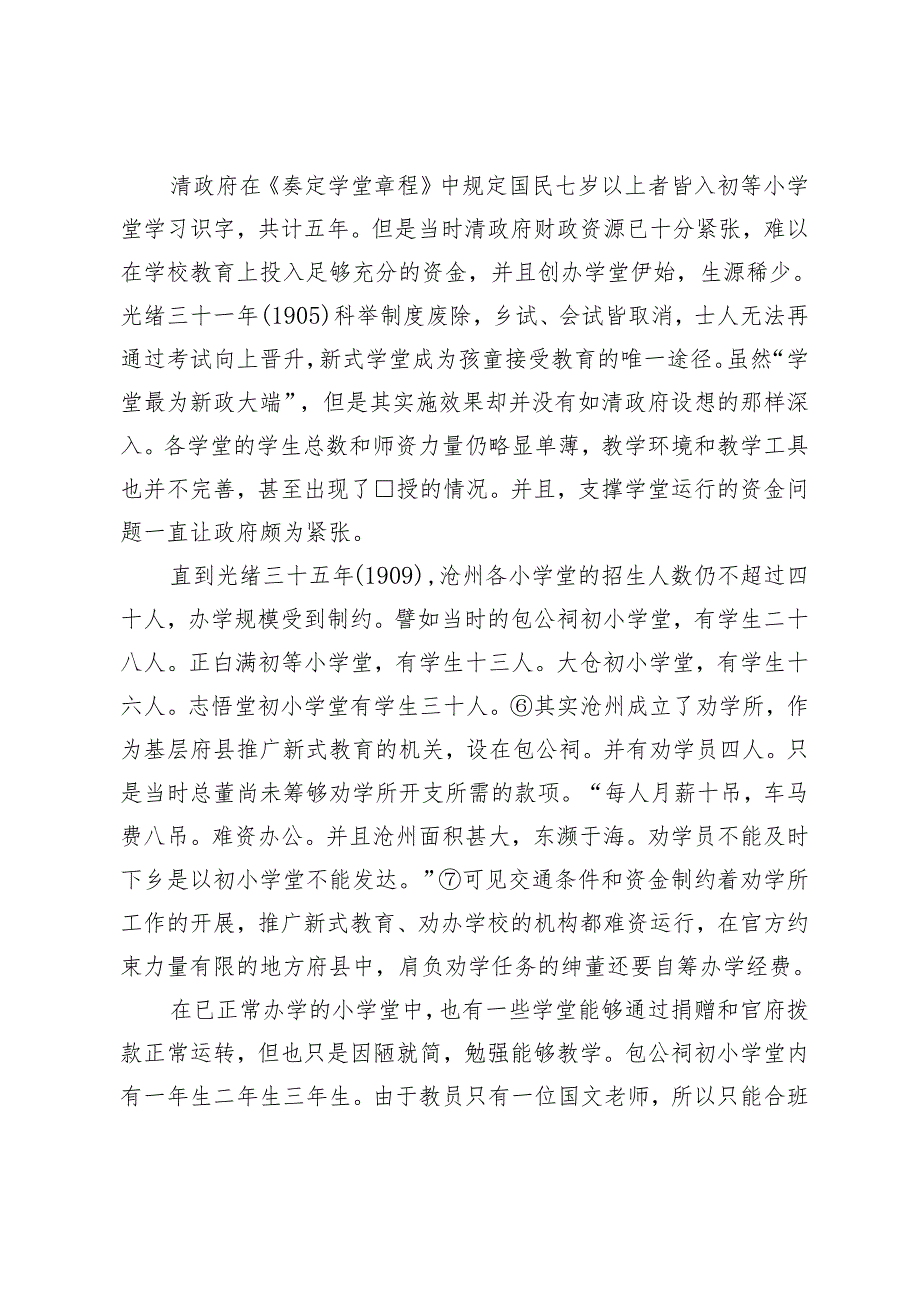 清政府在《奏定学堂章程》中规定国民七岁以上者皆入初等小学
堂学习识字，共计五年。但是当时清政府财政资源已十分紧张，难以
在学校教育上投入足够充分的资金，并且创办学堂伊始，生源稀少。
光绪三十一年(1905)科举制度废除，乡试、会试皆取消，士人无法再
通过考试向上晋升，新式学堂成为孩童接受教育的唯一途径。虽然“学
堂最为新政大端”，但是其实施效果却并没有如清政府设想的那样深
入。各学堂的学生总数和师资力量仍略显单薄，教学环境和教学工具
也并不完善，甚至出现了□授的情况。并且，支撑学堂运行的资金问
题一直让政府颇为紧张。
直到光绪三十五年(1909),沧州各小学堂的招生人数仍不超过四
十人，办学规模受到制约。譬如当时的包公祠初小学堂，有学生二十
八人。正白满初等小学堂，有学生十三人。大仓初小学堂，有学生十
六人。志悟堂初小学堂有学生三十人。⑥其实沧州成立了劝学所，作
为基层府县推广新式教育的机关，设在包公祠。并有劝学员四人。只
是当时总董尚未筹够劝学所开支所需的款项。“每人月薪十吊，车马
费八吊。难资办公。并且沧州面积甚大，东濒于海。劝学员不能及时
下乡是以初小学堂不能发达。”⑦可见交通条件和资金制约着劝学所
工作的开展，推广新式教育、劝办学校的机构都难资运行，在官方约
束力量有限的地方府县中，肩负劝学任务的绅董还要自筹办学经费。
在已正常办学的小学堂中，也有一些学堂能够通过捐赠和官府拨
款正常运转，但也只是因陋就简，勉强能够教学。包公祠初小学堂内
有一年生二年生三年生。由于教员只有一位国文老师，所以只能合班